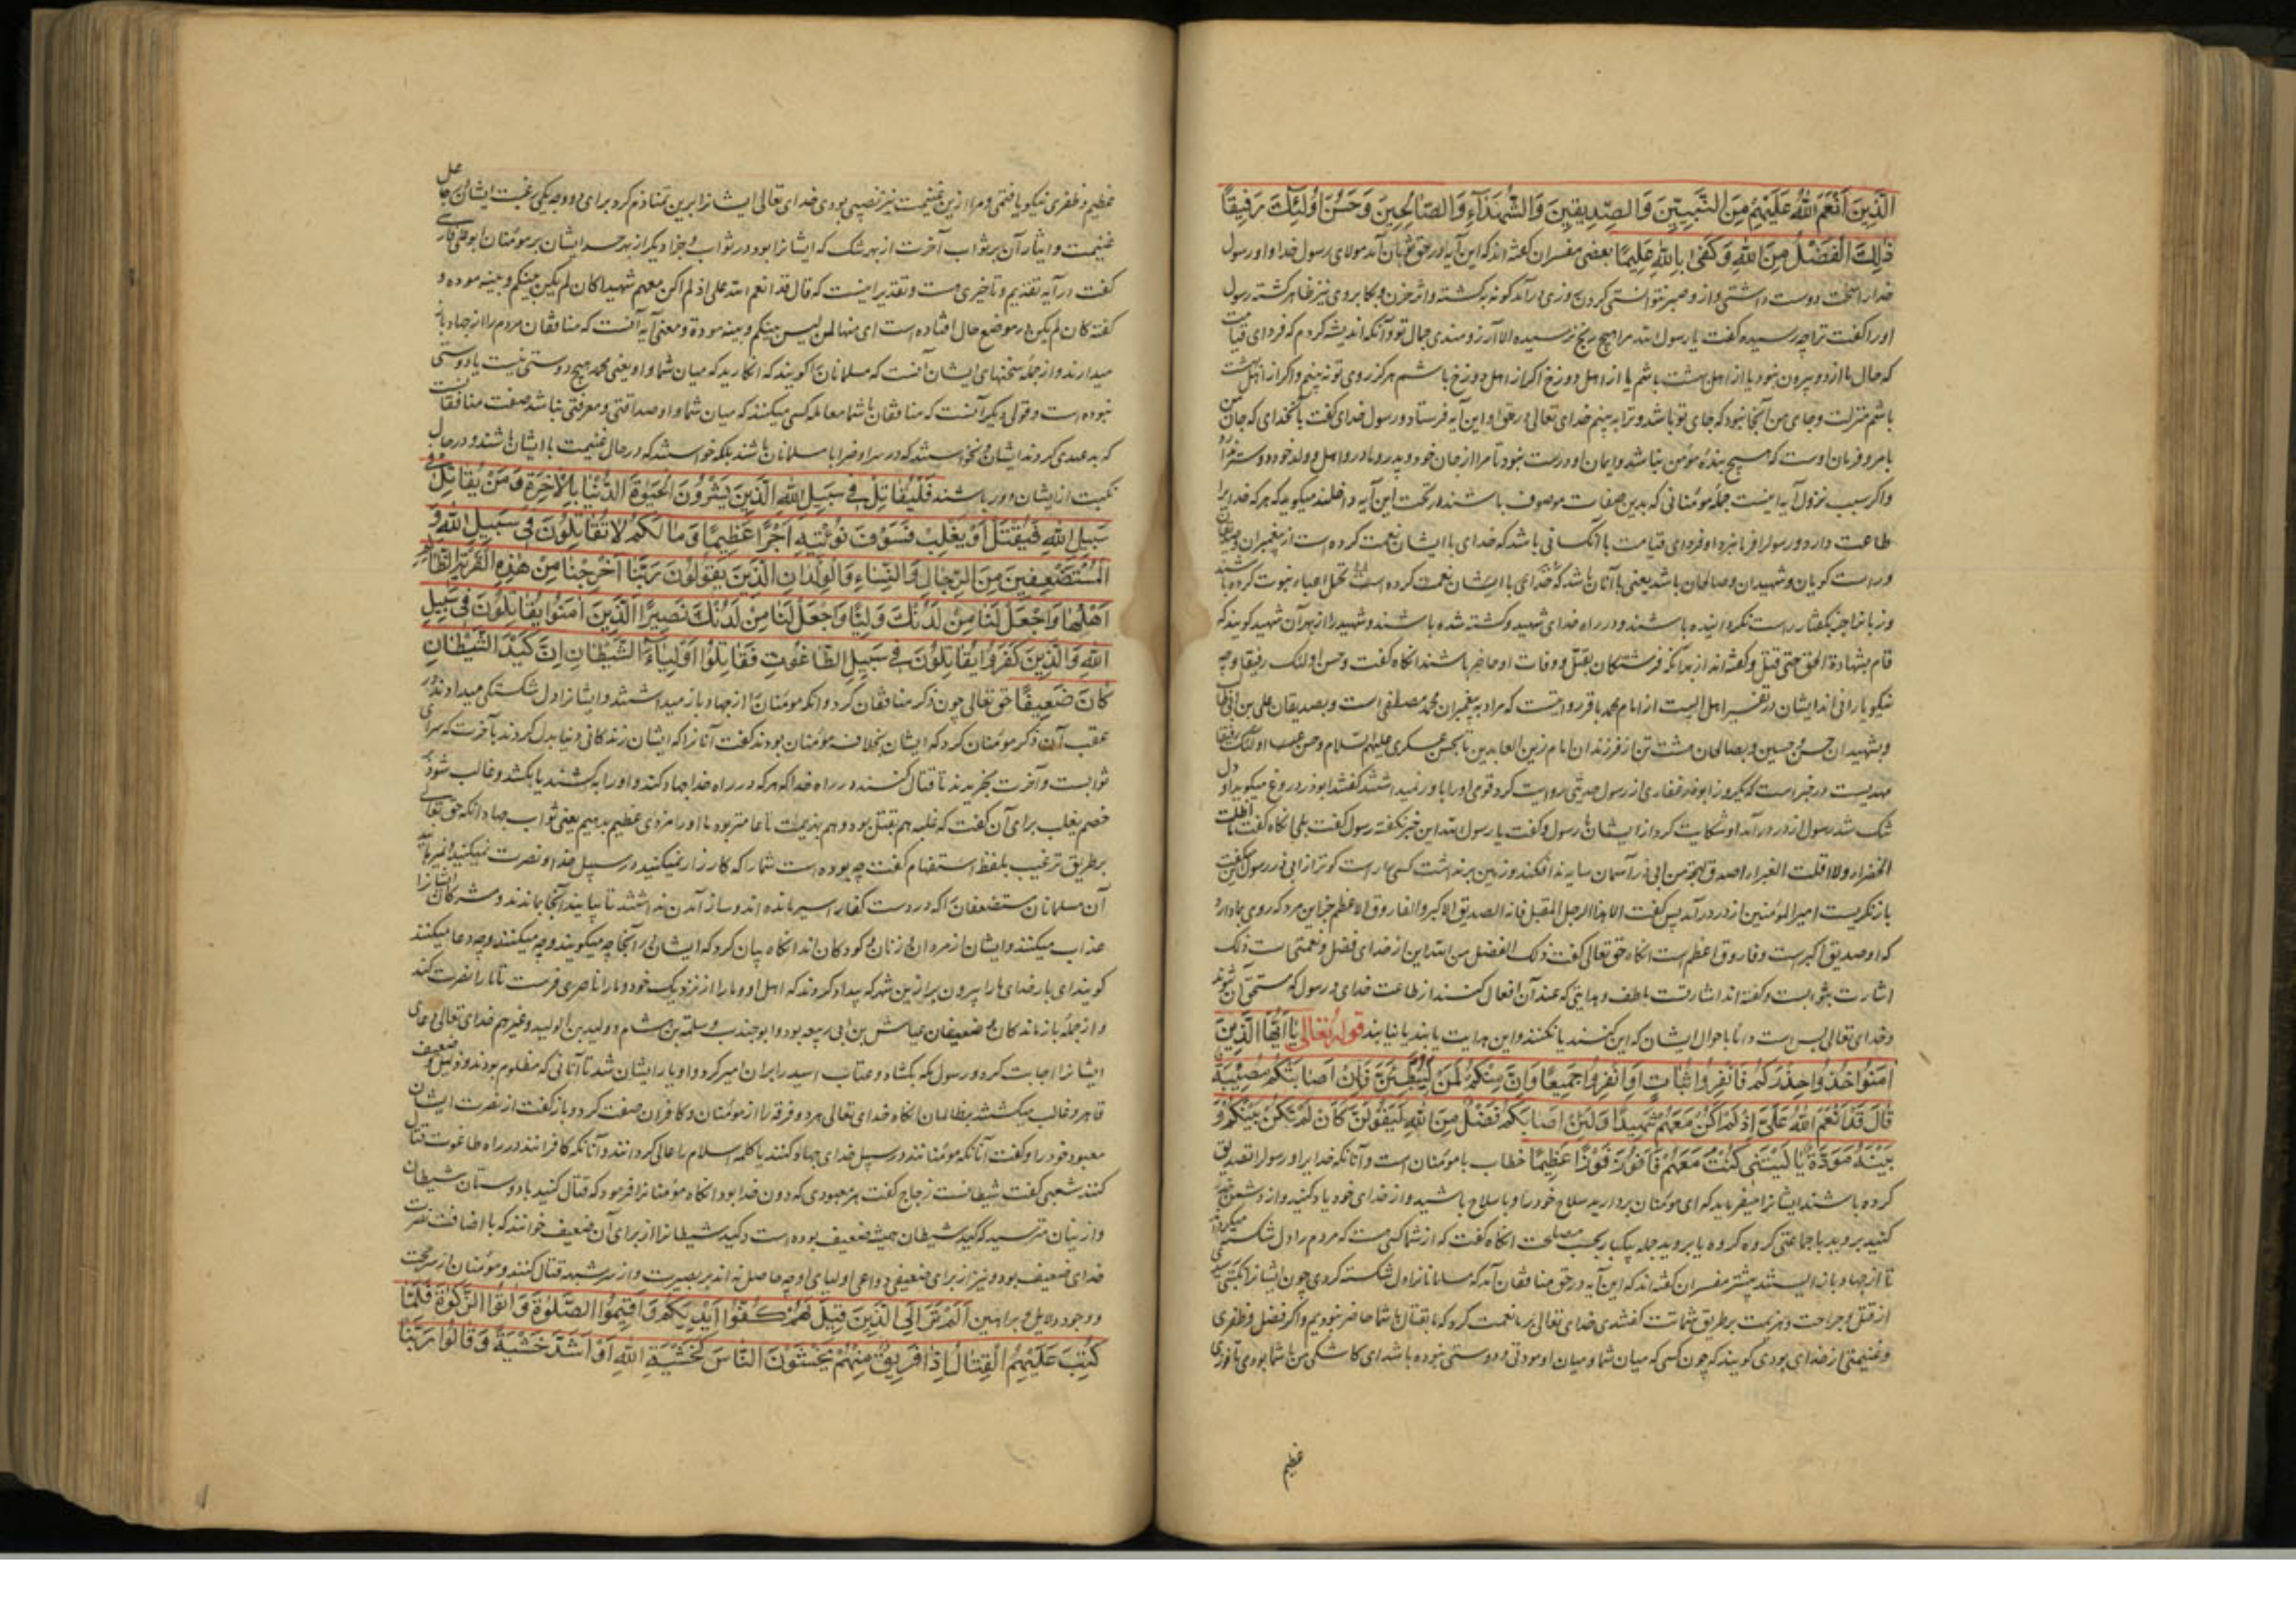 الَّذِينَ أَنْعَمَ اللهُ عَلَيْهِمْ مِنَ النَّبِيِّينَ وَالصِّدِيقِينَ وَالشُّهَدَآءِ وَالصَّالِحِينَ وَحَسُنَ أُولَئِكَ رَفِيقًا
ذٰلِكَ الْفَضْلُ مِنَ اللهِ وَكَفَىٰ بِاللهِ عَلِيمًا بعضی مفسران گفته اند که این آیه در حق ثوبان آمد مولای رسول خدا و او رسول
خدا را سخت دوست داشتی و از و صبر نتوانستی کردن روزی درآمد گونه برگشته و اثر حزن و بکا بروی نیز ظاهر گشته رسول
او را گفت ترا چه رسیده گفت یا رسول الله مرا هیچ رنج نرسیده الا آرزومندی جمال تو و آنکه اندیشه کردم که فردای قیامت
که حال ما از دو بیرون نبود یا از اهل بهشت باشم یا از اهل دوزخ اکر از اهل دوزخ باشم هرگز روی تو نه بینم واکر از اهل بهشت
باشم منزلت و جای من آنجا نبود که جای تو باشد و ترا نه بینم خدای تعالی در حق او این آیه فرستاد و رسول خدای گفت بآنخدای که جان من
بامر و فرمان اوست که هیچ بنده مؤمن نباشد و ایمان او درست نبود تا مرا از جان خود و پدر و مادر و اهل و ولد خود دوستر
واکر سبب نزول آیه اینست جمله مؤمنانی که بدین صفات موصوف باشند در تحت این آیه داخلند میکوید که هر که خدایرا
طاعت دارد و رسول را فرمانبرد او فردای قیامت با آنکسانی باشد که خدای با ایشان نعمت کرده است از پیغمبران و صدیقان
و راست کویان و شهیدان و صالحان باشد یعنی با آنان باشد که خدای با ایشان نعمت کرده است تحمل اعباء نبوت کرده باشند
و زبانرا جز بکفتار راست نکردانیده باشند و در راه خدای شهید و کشته شده باشند و شهید را از بهر آن شهید کویند که
قام بشهادة الحق حتی قتل و گفته اند از بهر آنکه فرشتکان بقتل و وفات او حاضر باشند انکاه گفت و حسن اولئک رفیقا و چه
نیکو یارانی اند ایشان در تفسیر اهل البیت از امام محمد باقر روایتست که مراد به پیغمبران محمد مصطفی است و بصدیقان علی بن ابی طالب
و بشهیدان حسن و حسین و بصالحان هشت تن از فرزندان امام زین العابدین تا بحسن عسکری علیهم السلام و حسن اولئک رفیقا
مهدیست در خبر است که یکروز ابوذر غفاری از رسول حدیثی روایت کرد قومی او را باور نمیداشتند گفتند ابوذر دروغ میکوید او دل
شک شد رسول از در درآمد او شکایت کرد از ایشان با رسول و گفت یا رسول الله این خبر نکفته رسول گفت بلی انکاه گفت ما اظلت
الخضراء ولا اقلت الغبراء اصدق لهجة من ابی ذر آسمان سایه نه افکند و زمین برنداشت کسی راست کو تر از ابی ذر رسول این میگفت
باز نکریست امیر المؤمنین از در درآمد پس گفت الا هذا الرجل المقبل فانه الصدیق الاکبر و الفاروق الاعظم جز این مرد که روی بما دارد
که او صدیق اکبر است و فاروق اعظم است انکاه حق تعالی گفت ذلک الفضل من الله این از خدای فضل و نعمتی است ذلک
اشارت بثوابست و کفته اند اشارتست بلطف و هدایتی که عند آن افعال کنند از طاعت خدای و رسول که مستحق آن شوند
و خدای تعالی بس است دانا باحوال ایشان که این کنند یا نکنند و این هدایت یابند یا نیابند قوله تعالی يَا أَيُّهَا الَّذِينَ
آمَنُوا خُذُوا حِذْرَكُمْ فَانْفِرُوا ثُبَاتٍ أَوِ انْفِرُوا جَمِيعًا وَإِنَّ مِنْكُمْ لَمَنْ لَيُبَطِّئَنَّ فَإِنْ أَصَابَتْكُمْ مُصِيبَةٌ
قَالَ قَدْ أَنْعَمَ اللهُ عَلَيَّ إِذْ لَمْ أَكُنْ مَعَهُمْ شَهِيدًا وَلَئِنْ أَصَابَكُمْ فَضْلٌ مِنَ اللهِ لَيَقُولَنَّ كَأَنْ لَمْ تَكُنْ بَيْنَكُمْ وَ
بَيْنَهُ مَوَدَّةٌ يَا لَيْتَنِي كُنْتُ مَعَهُمْ فَأَفُوزَ فَوْزًا عَظِيمًا خطاب با مؤمنان است و آنانکه خدایرا و رسولرا تصدیق
کرده باشند ایشانرا میفرماید که ای مؤمنان بردارید سلاح خود را و با سلاح باشید و از خدای خود یاد کنید و از دشمن حذر
کنید بروید با جماعتی کروه کروه یا بروید جمله بیکبار بحسب مصلحت انکاه گفت که از شما کسی هست که مردم را دل شکسته میکرداند
تا از جهاد باز ایستند بیشتر مفسران گفته اند که این آیه در حق منافقان آمد که مسلمانانرا دل شکسته کردی چون ایشانرا نکبتی رسیدی
از قتل و جراحت و هزیمت بر طریق شماتت گفتندی خدای تعالی بر ما نعمت کرد که ما بقتال با شما حاضر نبودیم واکر فضل و ظفری
و غنیمتی از خدای بودی کویند که چون کسی که میان شما و میان او مودتی و دوستی نبوده باشد ای کاشکی من با شما بودمی تا فوزی
عظیم
عظیم و ظفری نیکو یافتمی و مرا ازین غنیمت نیز نصیبی بودی خدای تعالی ایشانرا برین تمنا ذم کرد برای دو وجه یکی رغبت ایشان بر حاصل
غنیمت و ایثار آن بر ثواب آخرت از بهر شک که ایشانرا بود در ثواب و جزا دیکر از بهر حسد ایشان بر مؤمنان ابوعلی فارسی
گفت در آیه تقدیم و تاخیری هست و تقدیر اینست که قال قد انعم الله علی اذ لم اکن معهم شهیدا کان لم یکن بینکم و بینه مودة و
گفته کان لم یکن در موضع حال افتاده است ای منها لمن لیس بینکم و بینه مودة و معنی آیه آنست که منافقان مردم را از جهاد باز
میدارند و از جمله سخنهای ایشان آنست که مسلمانان را کویند که انکارید که میان شما و او یعنی محمد هیچ دوستی نیست یا دوستی
نبوده است و قولی دیکر آنست که منافقان با شما معامله کسی میکنند که میان شما و او صداقتی و معرفتی نباشد صفت منافقانست
که بدعهدی کردند ایشان نخواستند که در سرا و ضرا با مسلمانان باشند بلکه خواستند که در حال غنیمت با ایشان باشند و در حال
نکبت از ایشان دور باشند فَلْيُقَاتِلْ فِي سَبِيلِ اللهِ الَّذِينَ يَشْرُونَ الْحَيٰوةَ الدُّنْيَا بِالْآخِرَةِ وَمَنْ يُقَاتِلْ فِي
سَبِيلِ اللهِ فَيُقْتَلْ أَوْ يَغْلِبْ فَسَوْفَ نُؤْتِيهِ أَجْرًا عَظِيمًا وَمَا لَكُمْ لَا تُقَاتِلُونَ فِي سَبِيلِ اللهِ وَ
الْمُسْتَضْعَفِينَ مِنَ الرِّجَالِ وَالنِّسَاءِ وَالْوِلْدَانِ الَّذِينَ يَقُولُونَ رَبَّنَا أَخْرِجْنَا مِنْ هٰذِهِ الْقَرْيَةِ الظَّالِمِ
أَهْلُهَا وَاجْعَلْ لَنَا مِنْ لَدُنْكَ وَلِيًّا وَاجْعَلْ لَنَا مِنْ لَدُنْكَ نَصِيرًا الَّذِينَ آمَنُوا يُقَاتِلُونَ فِي سَبِيلِ
اللهِ وَالَّذِينَ كَفَرُوا يُقَاتِلُونَ فِي سَبِيلِ الطَّاغُوتِ فَقَاتِلُوا أَوْلِيَاءَ الشَّيْطَانِ إِنَّ كَيْدَ الشَّيْطَانِ
كَانَ ضَعِيفًا حق تعالی چون ذکر منافقان کرد و انکه مؤمنان را از جهاد باز میداشتند و ایشانرا دل شکستکی میدادند در
عقب آن ذکر مؤمنان کرد که ایشان بخلاف مؤمنان بودند گفت آنانرا که ایشان زندکانی دنیا بدل کردند بآخرت که سرای
ثوابست و آخرت بخریدند تا قتال کنند در راه خدا که هر که در راه خدا جهاد کند و او را بکشند یا بکشد و غالب شود بر
خصم یغلب برای آن گفت که غلبه هم بقتل بود و هم بهزیمت تا عامتر بود ما او را مزدی عظیم بدهیم یعنی ثواب جهاد انکه حق تعالی
بر طریق ترغیب بلفظ استفهام گفت چه بوده است شما را که کارزار نمیکنید در سبیل خدا و نصرت نمیکنید
آن مسلمانان مستضعفان را که در دست کفار اسیر مانده اند و ساز آمدن نداشتند تا بیایند آنجا بماندند و مشرکان ایشانرا
عذاب میکنند و ایشان از مردان و زنان و کودکان اند انکاه بیان کرد که ایشان در آنجا چه میکویند و چه میکنند و چه دعا میکنند
کویند ای بار خدای ما را بیرون بر ازین شهر که بیداد کردند که اهل او و ما را از نزدیک خود و ما را ناصری فرست تا ما را نصرت کند
و از جمله بازماندکان و ضعیفان عیاش بن ابی ربیعه بود و ابو جندب و سلمة بن هشام و ولید بن الولید و غیرهم خدای تعالی دعای
ایشانرا اجابت کرد و رسول مکه بکشاد و عتاب اسید را بر ان امیر کرد و او یار ایشان شد تا آنانی که مظلوم بودند و ذلیل و ضعیف
قاهر و غالب میکشتند بر ظالمان انکاه خدای تعالی هر دو فرقه را از مؤمنان و کافران صفت کرد و باز گفت از نصرت ایشان
معبود خود را و گفت آنانکه مؤمنانند در سبیل خدای جهاد کنند یا کلمه اسلام را عالی کردانند و آنانکه کافرانند در راه طاغوت قتال
کنند شعبی گفت شیطانست زجاج گفت هر معبودی که دون خدا بود انکاه مؤمنانرا فرمود که قتال کنید با دوستان شیطان
و از ایشان مترسید که کید شیطان همیشه ضعیف بوده است و کید شیطانرا از برای آن ضعیف خوانند که با اضافت نصرت
خدای ضعیف بود و نیز از برای ضعیفی دواعی اولیای او چه حاصل نه اند بر بصیرت و از سر شبهه قتال کنند و مؤمنان از سر حجت
و وجود دلایل و براهین أَلَمْ تَرَ إِلَى الَّذِينَ قِيلَ لَهُمْ كُفُّوا أَيْدِيَكُمْ وَأَقِيمُوا الصَّلٰوةَ وَآتُوا الزَّكٰوةَ فَلَمَّا
كُتِبَ عَلَيْهِمُ الْقِتَالُ إِذَا فَرِيقٌ مِنْهُمْ يَخْشَوْنَ النَّاسَ كَخَشْيَةِ اللهِ أَوْ أَشَدَّ خَشْيَةً وَقَالُوا رَبَّنَا